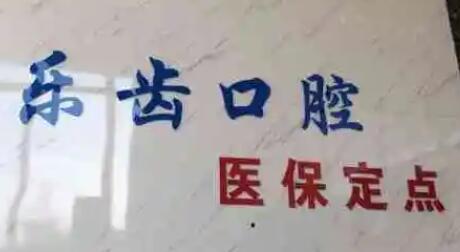 乐齿口腔
医保定点